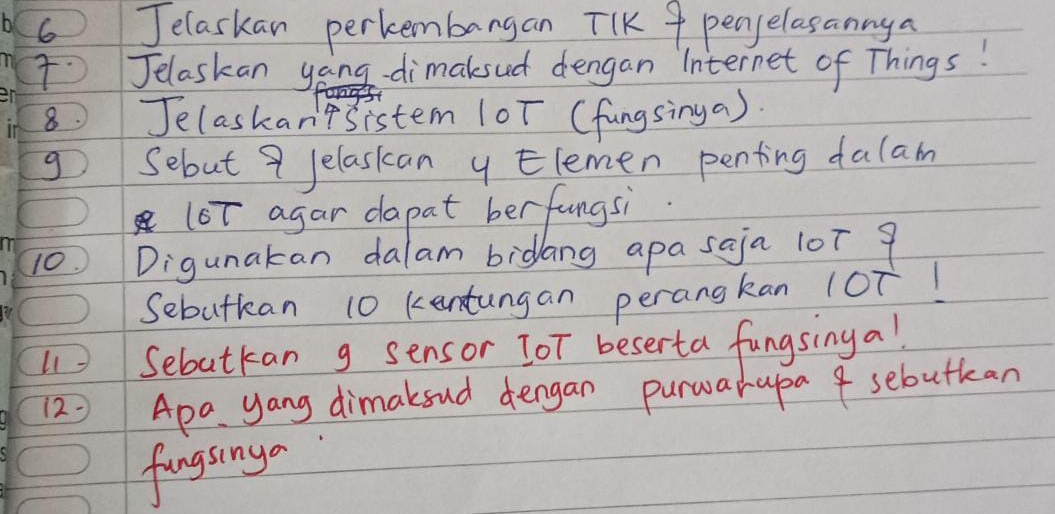 6 Jelaskan perkembangan TIK & penjelasannya
7. Jelaskan yang dimaksud dengan Internet of Things!
fungsi
8. Jelaskan sistem IOT (fungsinya).
9 Sebut & Jelaskan 4 Elemen penting dalam
IOT agar dapat berfungsi.
10. Digunakan dalam bidang apa saja IOT &
Sebutkan 10 kentungan perangkan IOT !
11- Sebutkan 9 sensor IoT beserta fungsinya!
12- Apa yang dimaksud dengan purwarupa & sebutkan
fungsinya